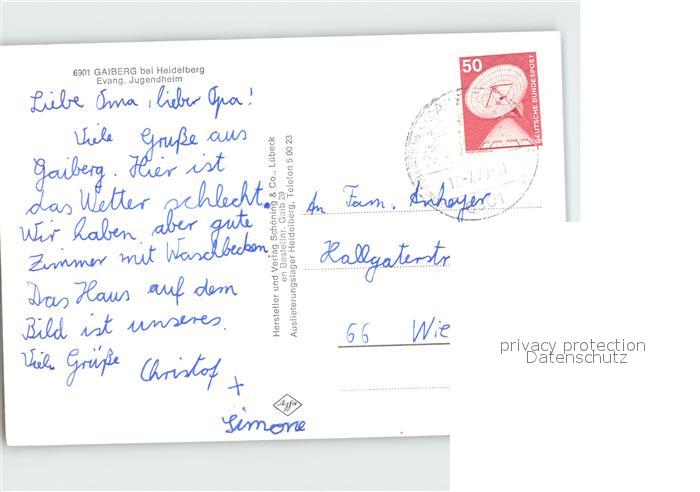 6901 GAIBERG bei Heidelberg
Evang. Jugendheim
Liebe Oma, lieber Opa!
Viele Gruße aus
Gaiberg. Hier ist
das Wetter schlecht.
Wir haben aber gute
Zimmer mit Waschbecken.
Das Haus auf dem
Bild ist unseres.
Viele Grüße
Christof
+
Simone
Hersteller und Verlag Schöning & Co., Lübeck
en Bestellnr. Gaib 29
Auslieferungslager Heidelberg, Telefon 5 00 23
Agfa
50
DEUTSCHE BUNDESPOST
An Fam.
Hallgaterstr
66 Wie
privacy protection
Datenschutz